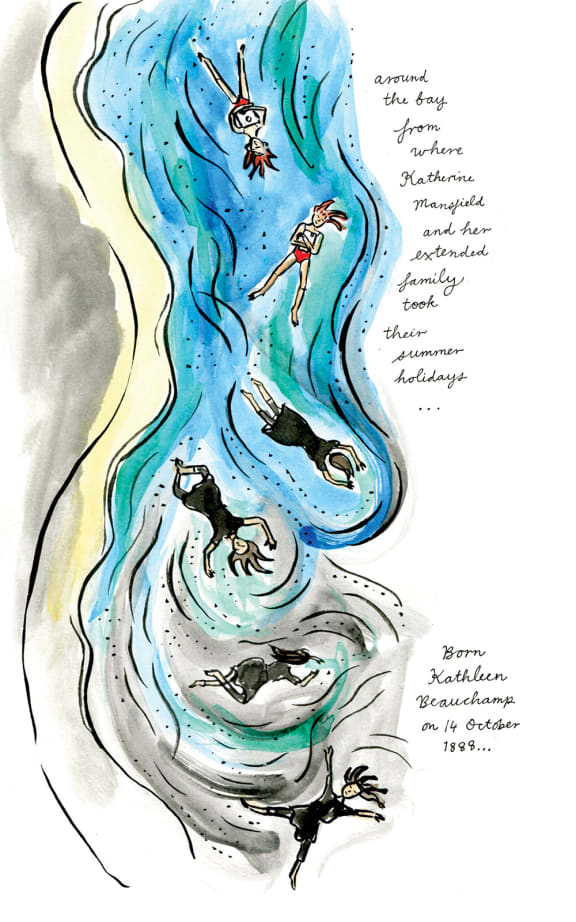 around
the bay
from
where
Katherine
Mansfield
and her
extended
family
took
their
summer
holidays
...
Born
Kathleen
Beauchamp
on 14 October
1888...